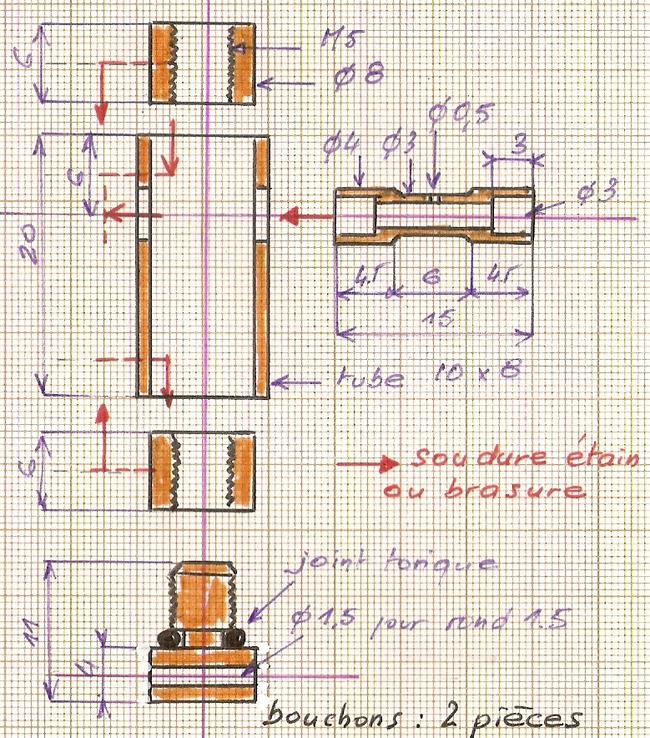 6
M5
Ø 8
Ø4
Ø3
Ø0,5
3
Ø3
6
20
4.5
6
4.5
15
tube 10 x 8
6
soudure étain
ou brasure
joint torique
11
Ø1,5 pour rond 1.5
4
bouchons : 2 pièces